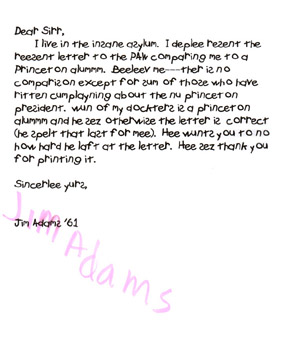 Dear Sirr,
I live in the inzane azylum. I deplee rezent the
reezent letter to the PAW comparing me to a
Princeton alummm. Beeleev me----ther iz no
comparizon except for zum of thoze who have
ritten cumplayning about the nu princeton
prezident. wun of my dockterz iz a princeton
alummm and he zez otherwize the letter iz correct
(he zpelt that lazt for mee). Hee wuntz you to no
how hard he laft at the letter. Hee zez thank you
for printing it.
Sincerlee yurz,
Jim Adamz '61
Jim Adams